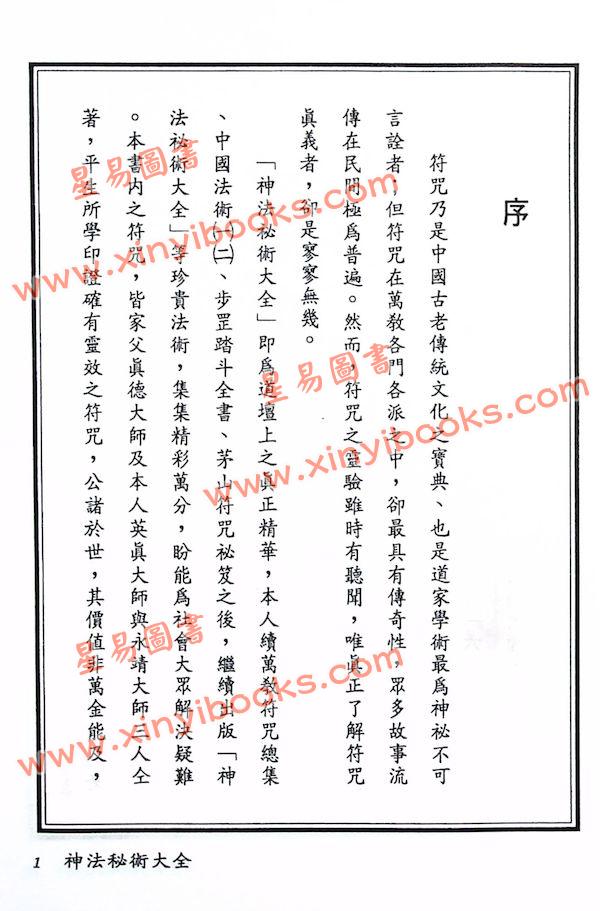 序
符咒乃是中國古老傳統文化之寶典、也是道家學術最爲神祕不可
言詮者；但符咒在萬教各門各派之中，卻最具有傳奇性，眾多故事流
傳在民間極爲普遍。然而，符咒之靈驗雖時有聽聞，唯眞正了解符咒
眞義者，卻是寥寥無幾。
「神法秘術大全」即爲道壇上之眞正精華，本人續萬教符咒總集
、中國法術㈠㈡、步罡踏斗全書、茅山符咒祕笈之後，繼續出版「神
法秘術大全」等珍貴法術，集集精彩萬分，盼能爲社會大眾解決疑難
。本書內之符咒，皆家父眞德大師及本人英眞大師與永靖大師三人仝
著，平生所學印證確有靈效之符咒，公諸於世，其價值非萬金能及，
1 神法秘術大全
星易圖書
www.xinyibooks.com
星易圖書
www.xinyibooks.com
星易圖書
www.xinyibooks.com